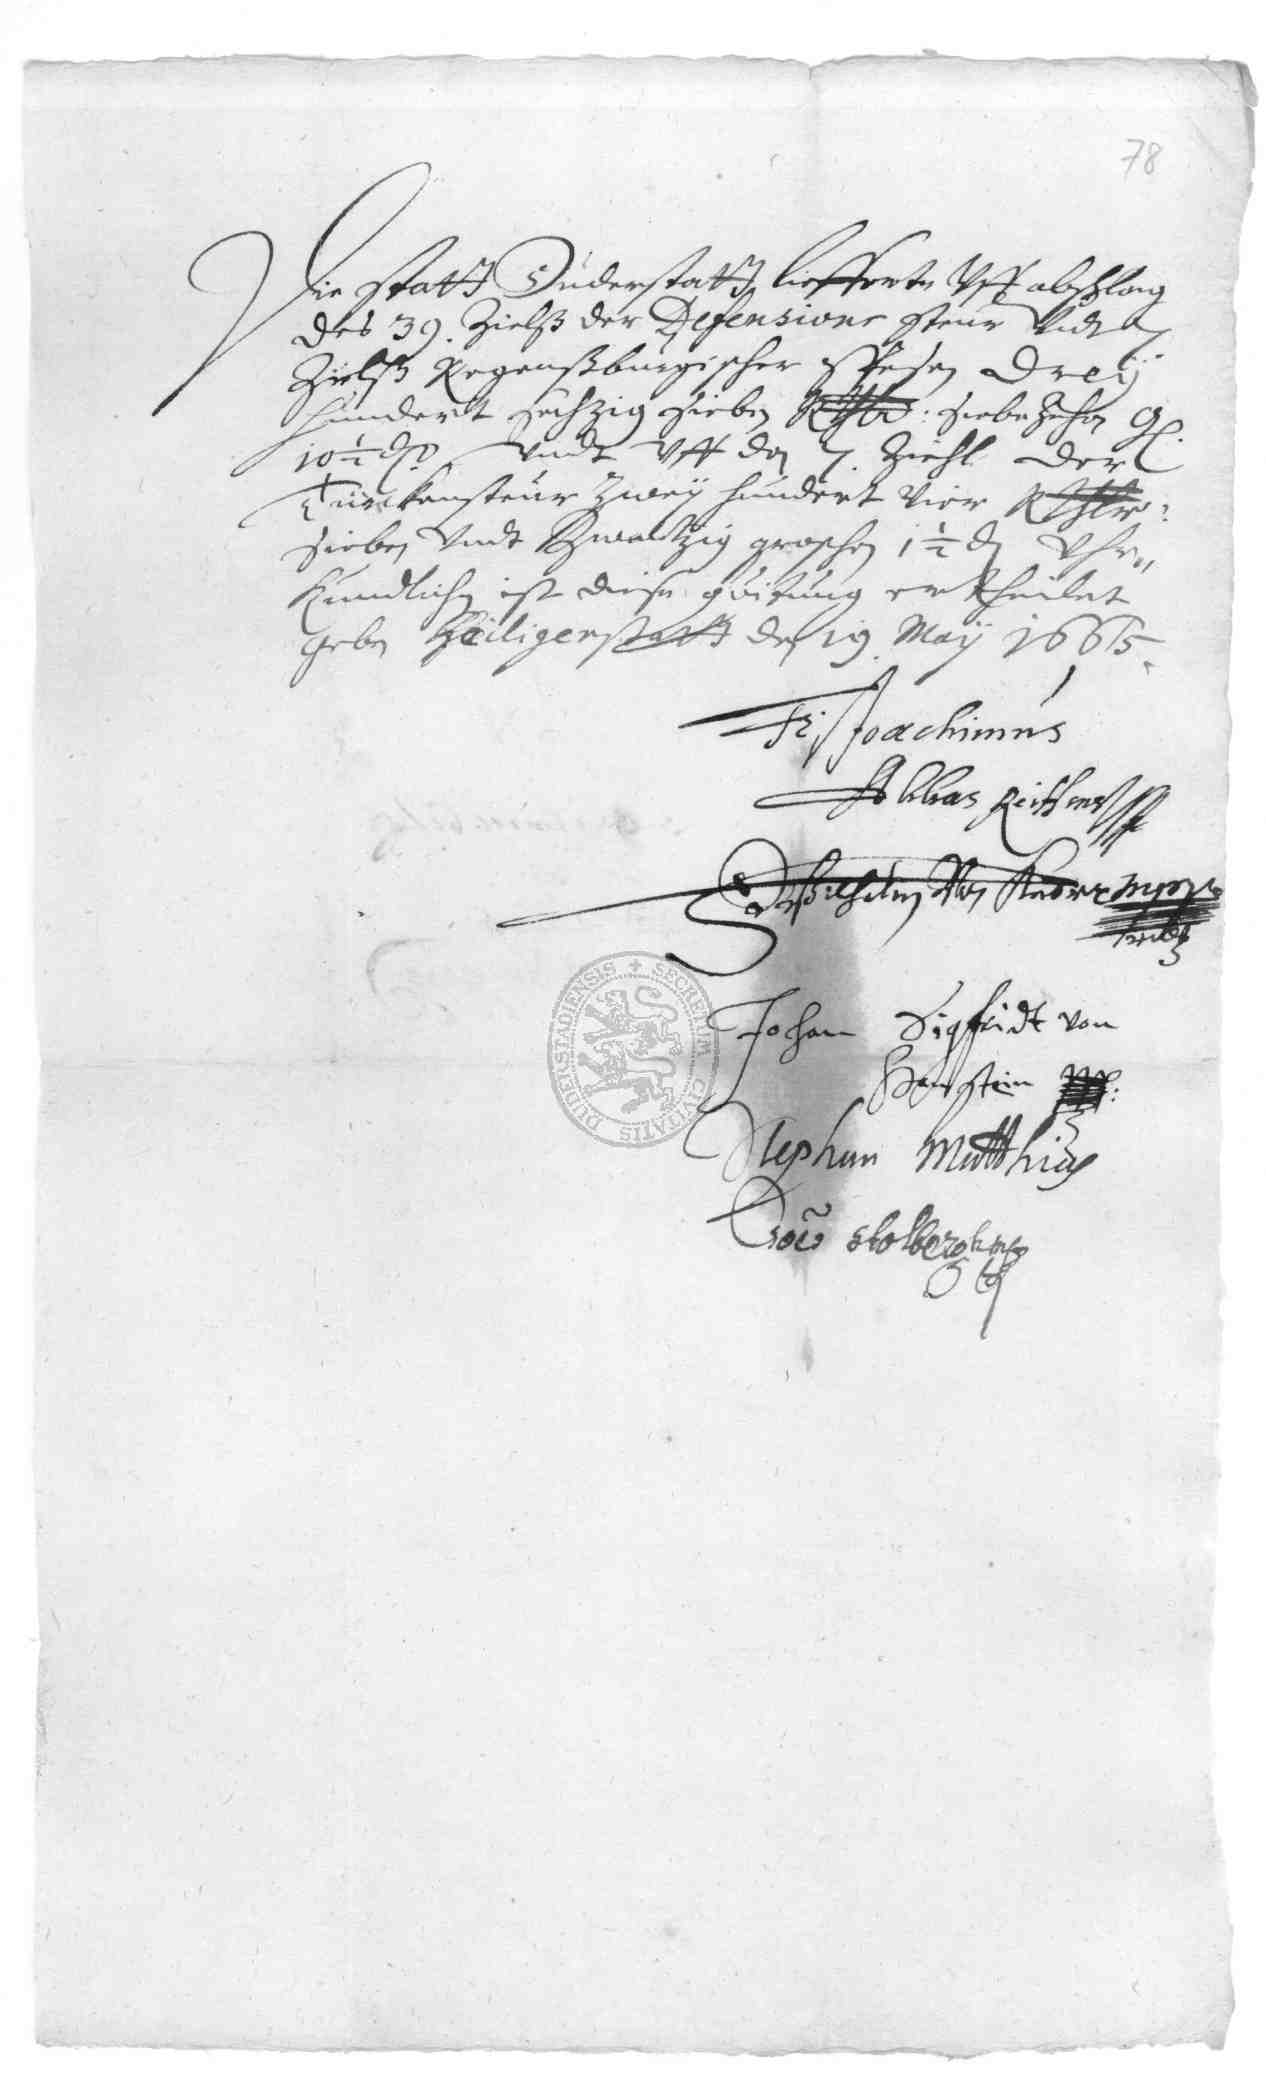 78
Die Statt Duderstatt lieffertt Vff abschlag
des 39. Zielß der Defensions steur Vndt
Zielß Regenßburgischer Spesen Dreÿ
hundert sechzig sieben Rthlr: siebezehen gl.
10½ d. Vndt Vff den 7. Ziehl der
Türckensteur Zweÿ hundert vier Rthlr:
sieben Vndt Zwantzig groschen 1½ d Vhr„
kundlichen ist diese quitung ertheilet
geben Heiligenstatt den 19. Maÿ 1665.
Fr: Joachimus
Abbas Reiffenst
Wilhelm Von
Johan Sigfridt von
Hanstein
Stephan Matthias
Stolberg
SECRETUM CIVITATIS DUDERSTADIENSIS